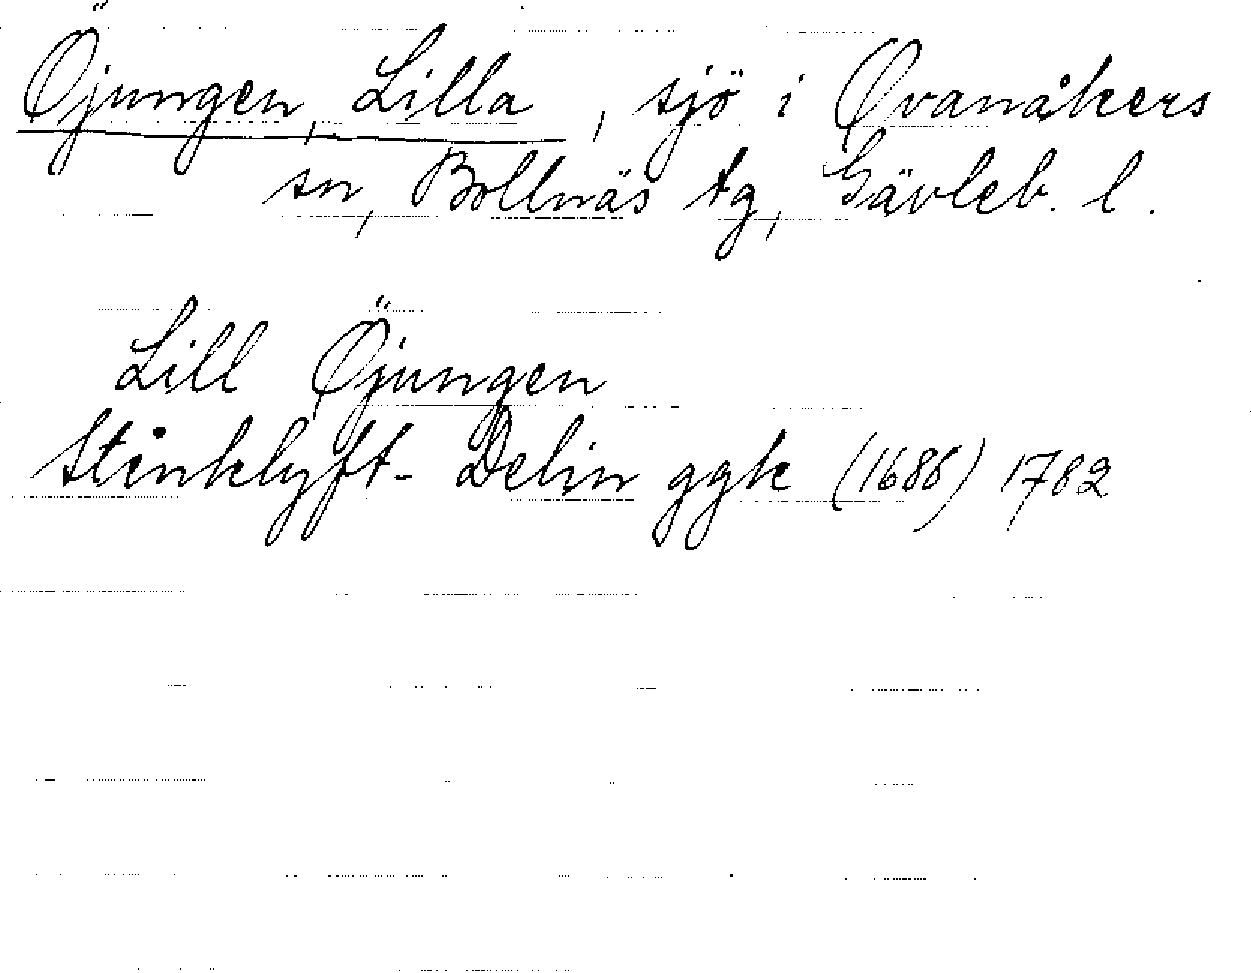 Öjungen, Lilla, sjö i Ovanåkers
sn, Bollnäs tg, Gävleb. l.
Lill Öjungen
Stenklyft- Delin ggk (1686) 1782